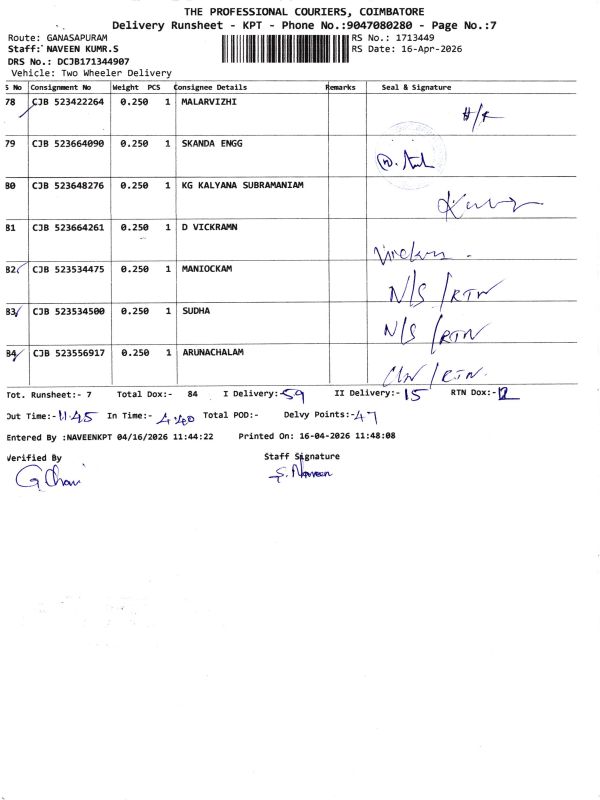 THE PROFESSIONAL COURIERS, COIMBATORE
Delivery Runsheet - KPT - Phone No.:9047080280 - Page No.:7
Route: GANASAPURAM
RS No.: 1713449
Staff: NAVEEN KUMR.S
RS Date: 16-Apr-2026
DRS No.: DCJB171344907
Vehicle: Two Wheeler Delivery
S No Consignment No Weight PCS Consignee Details Remarks Seal & Signature
78 CJB 523422264 0.250 1 MALARVIZHI
79 CJB 523664090 0.250 1 SKANDA ENGG
80 CJB 523648276 0.250 1 KG KALYANA SUBRAMANIAM
81 CJB 523664261 0.250 1 D VICKRAMN
82 CJB 523534475 0.250 1 MANIOCKAM N/S /RTN
83 CJB 523534500 0.250 1 SUDHA N/S /RTN
84 CJB 523556917 0.250 1 ARUNACHALAM /RTN
Tot. Runsheet:- 7 Total Dox:- 84 I Delivery:- 59 II Delivery:- 15 RTN Dox:-
Out Time:- 11.45 In Time:- 4.40 Total POD:- Delvy Points:- 47
Entered By :NAVEENKPT 04/16/2026 11:44:22 Printed On: 16-04-2026 11:48:08
Verified By Staff Signature
S. Naveen